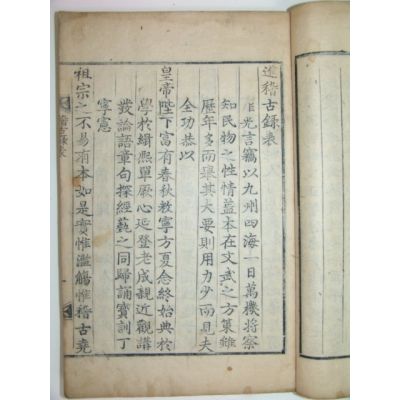 進稽古錄表
臣光言竊以九州四海一日萬機將察
知民物之性情蓋本在文武之方策雖
歷年多而舉其大要則用力少而見夫
全功恭以
皇帝陛下富有春秋敎寧方夏念終始典於
學於緝熙單厥心延登老成親近觀講
發論語章句探經藝之同歸誦寶訓丁
寧憲
祖宗之不易有本如是實惟濫觴惟稽古堯
稽古錄表